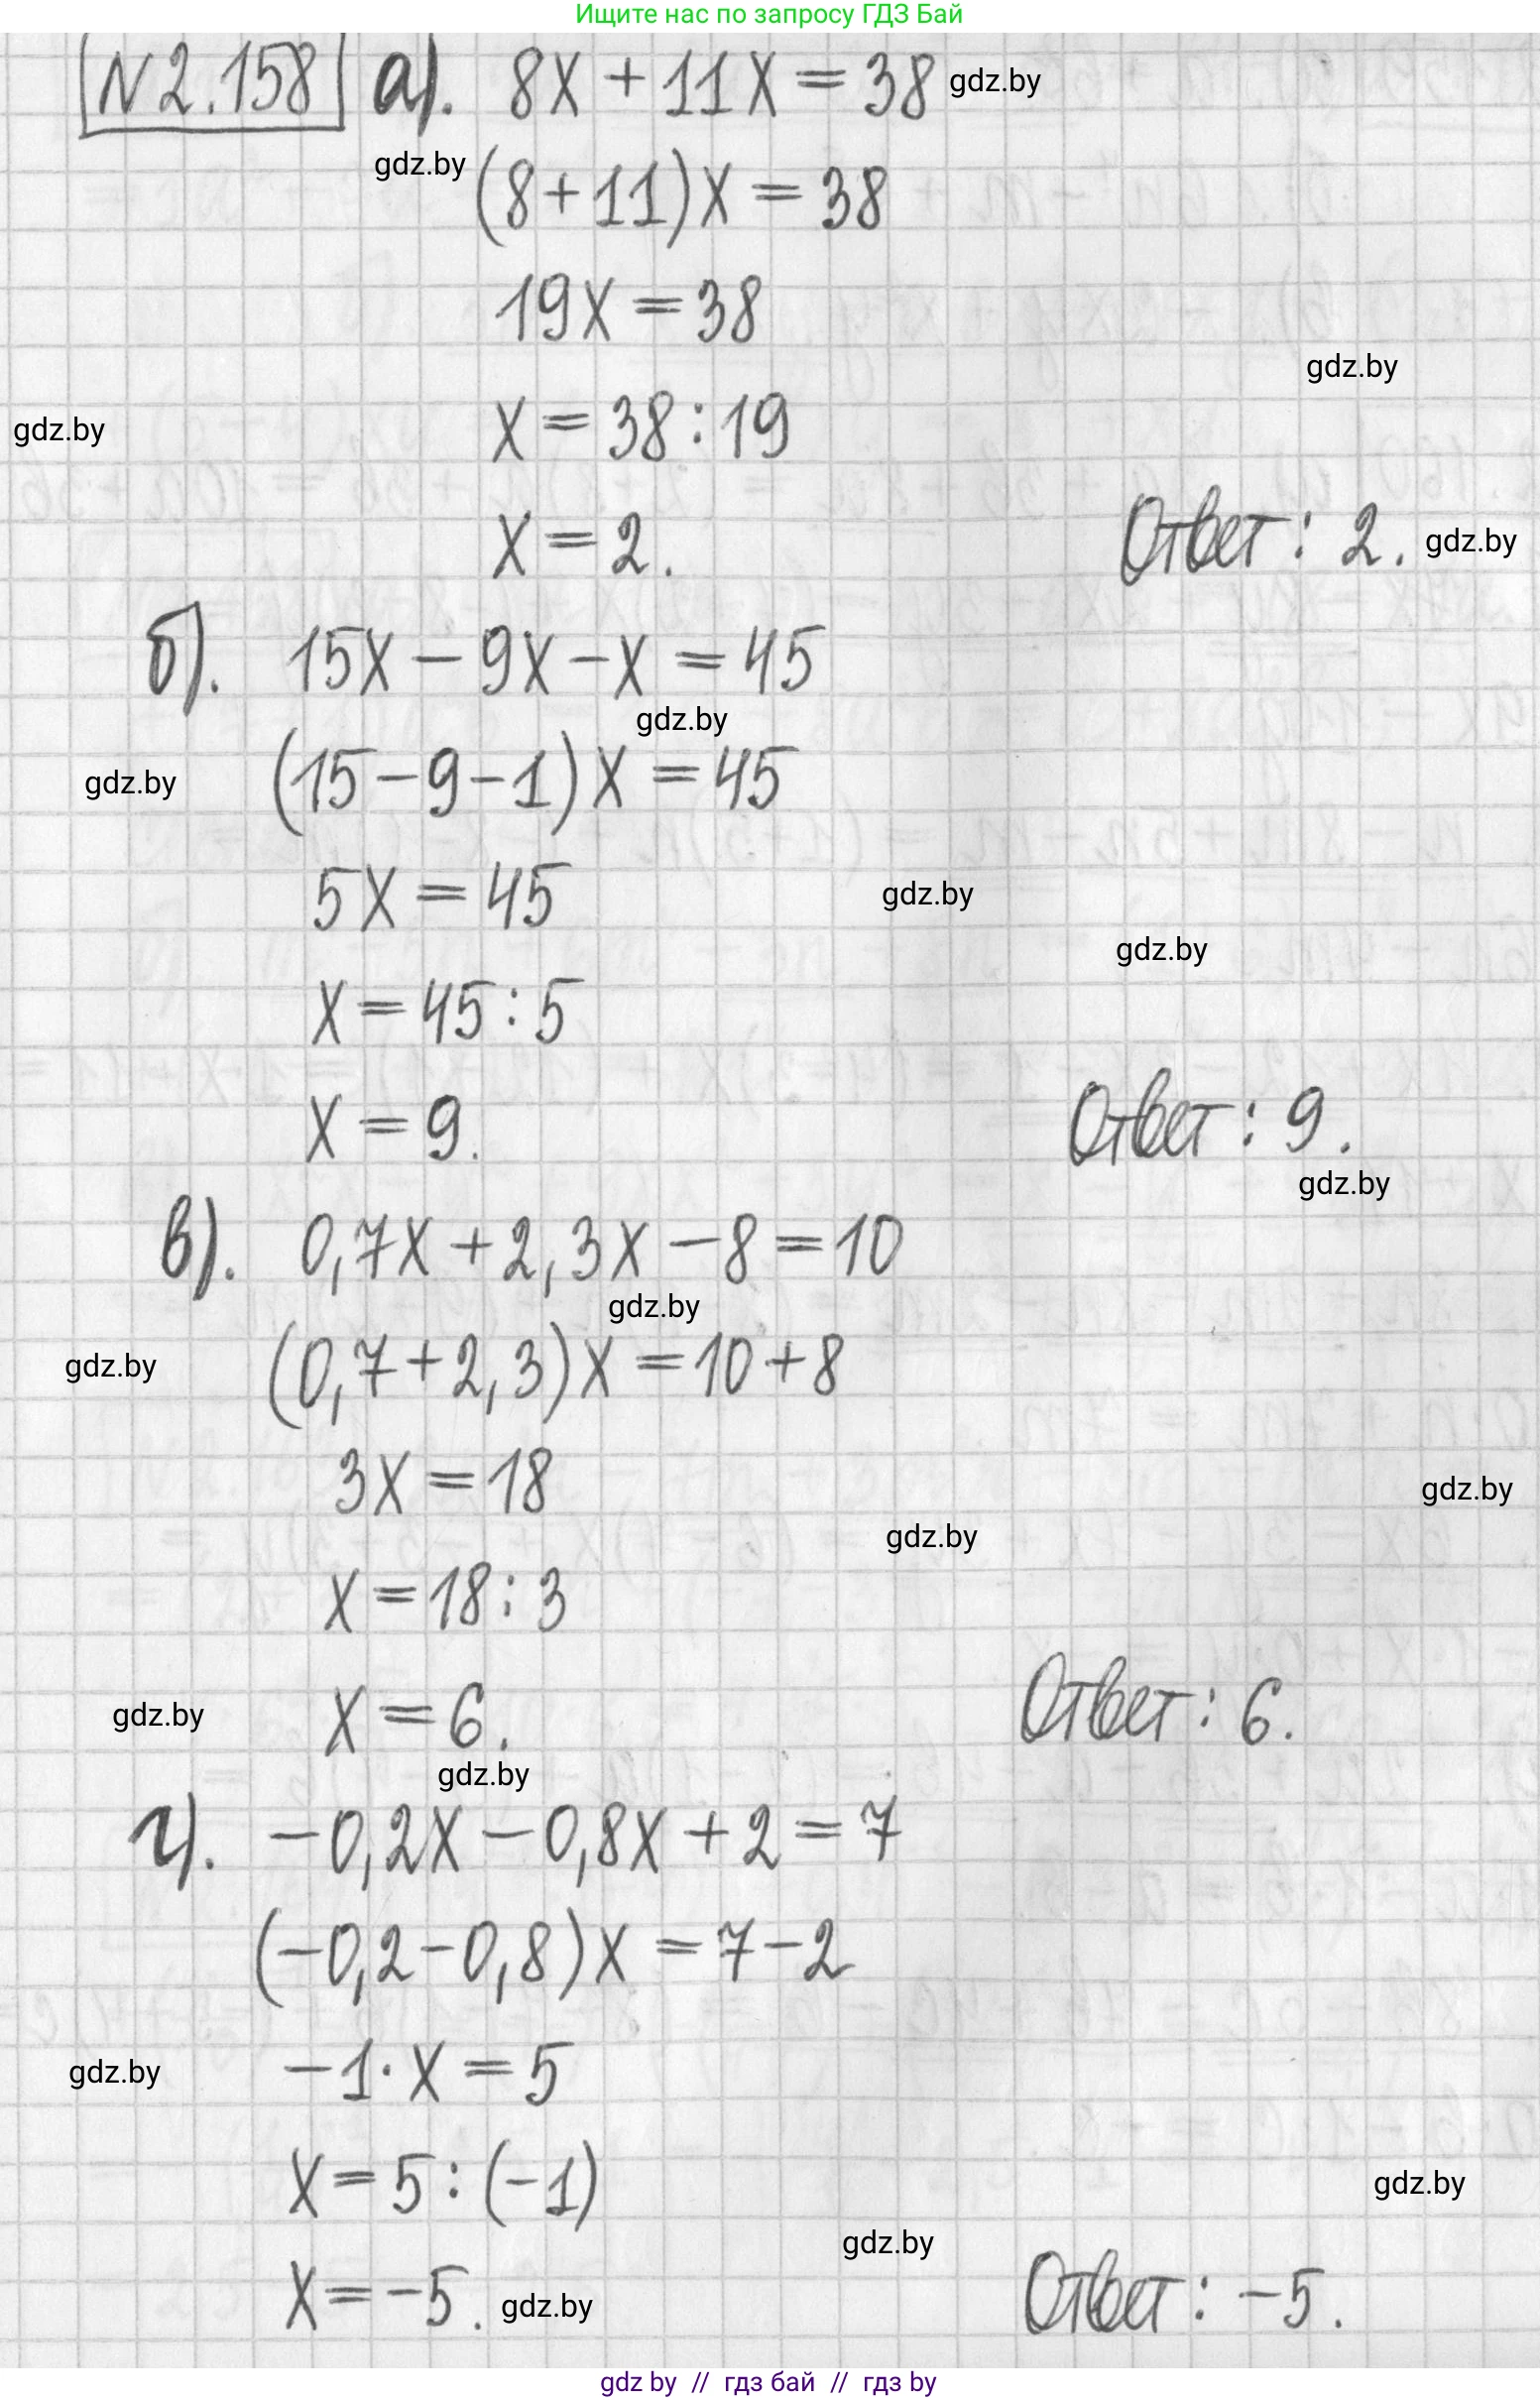 Ищите нас по запросу ГДЗ Бай
N 2.158 а). 8x + 11x = 38 gdz.by
gdz.by (8+11)x = 38
19x = 38
gdz.by
gdz.by x = 38 : 19
x = 2. Ответ: 2. gdz.by
б). 15x - 9x - x = 45
gdz.by
gdz.by (15-9-1)x = 45
5x = 45 gdz.by
gdz.by
x = 45 : 5
x = 9. Ответ: 9.
gdz.by
в). 0,7x + 2,3x - 8 = 10
gdz.by
gdz.by (0,7+2,3)x = 10+8
3x = 18 gdz.by
gdz.by
x = 18 : 3
gdz.by x = 6. Ответ: 6.
gdz.by
г). -0,2x - 0,8x + 2 = 7
(-0,2-0,8)x = 7-2
gdz.by -1·x = 5
x = 5 : (-1) gdz.by
gdz.by
x = -5. gdz.by Ответ: -5.
gdz by // гдз бай // гдз by